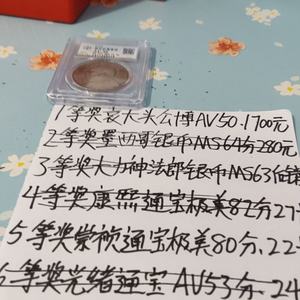 1等奖袁大头公博AV50.1700元
2等奖墨西哥银币MS64分280元
3等奖大力神法郎银币MS63
4等奖康熙通宝极美82分27
5等奖崇祯通宝极美80分.22
6等奖光绪通宝AV53分.24